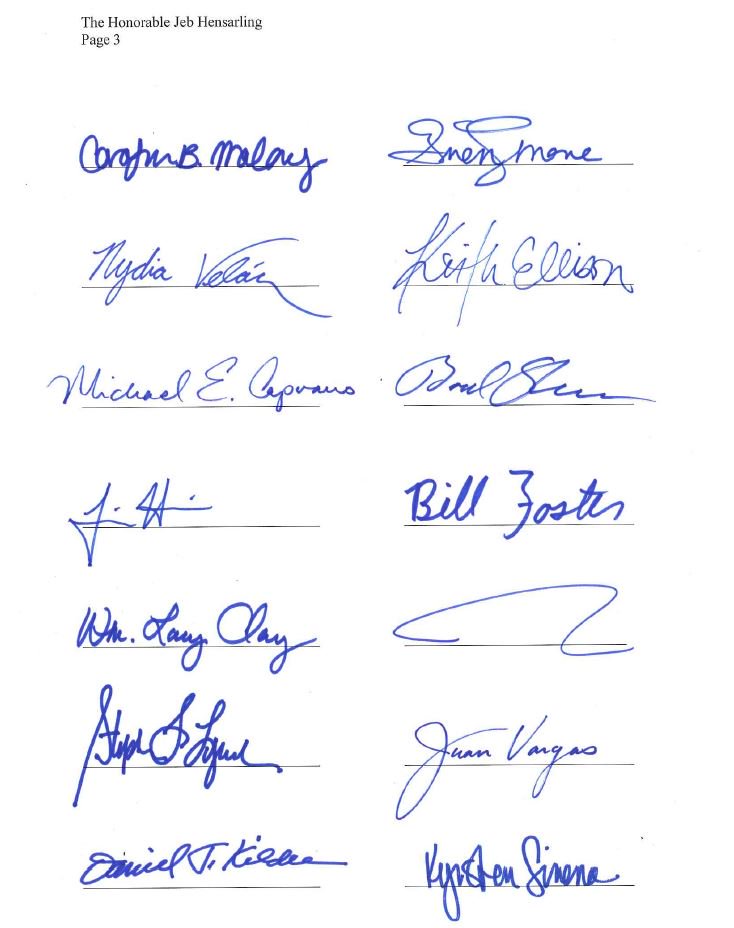 The Honorable Jeb Hensarling
Page 3
Carolyn B. Maloney
Gwen Moore
Nydia
Keith Ellison
Michael E. Capuano
Jim
Bill Foster
Wm. Lacy Clay
Stephen F. Lynch
Juan Vargas
Daniel T. Kildee
Kyrsten Sinema